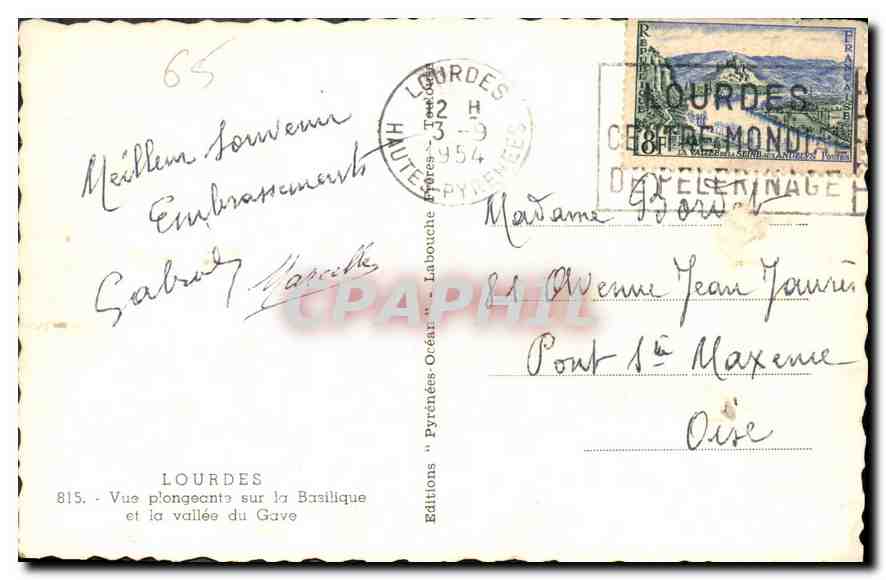 65
Meilleur souvenir
Embrassements
Marcelle
LOURDES
815. - Vue plongeante sur la Basilique
et la vallée du Gave
Editions " Pyrénées-Océan " - Labouche Frères - Toulouse
LOURDES
12 H
3 -9
1954
HAUTES-PYRENEES
REPUBLIQUE FRANCAISE
8F
LA VALLEE DE LA SEINE AUX ANDELYS POSTES
LOURDES
CENTRE MONDIAL
DE PELERINAGE
Madame Bordet
81 Avenue Jean Jaurès
Pont Ste Maxence
Oise
CPAPHIL